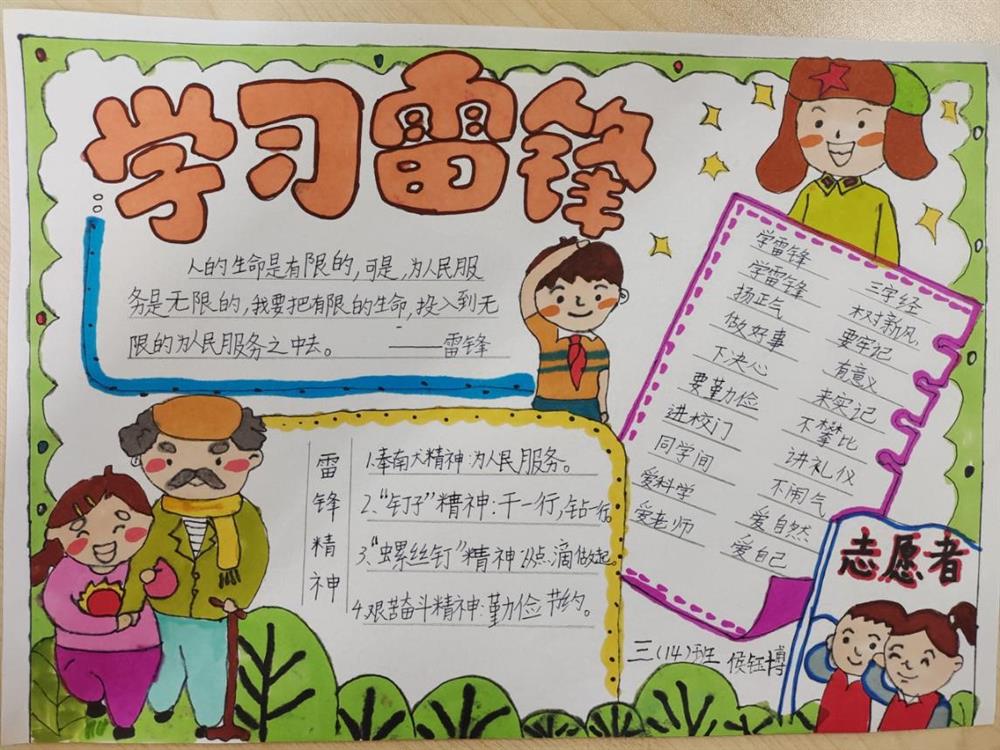 学习雷锋
人的生命是有限的,可是,为人民服
务是无限的,我要把有限的生命,投入到无
限的为人民服务之中去。 ——雷锋
雷锋精神
1.奉献精神:为人民服务。
2.“钉子”精神:干一行,钻一行。
3.“螺丝钉”精神:从点滴做起。
4.艰苦奋斗精神:勤俭节约。
学雷锋 三字经
学雷锋 树新风
扬正气 要牢记
做好事 有意义
下决心 来实记
要勤俭 不攀比
进校门 讲礼仪
同学间 不闹气
爱科学 爱自然
爱老师 爱自己
志愿者
三(14)班 侯钰博